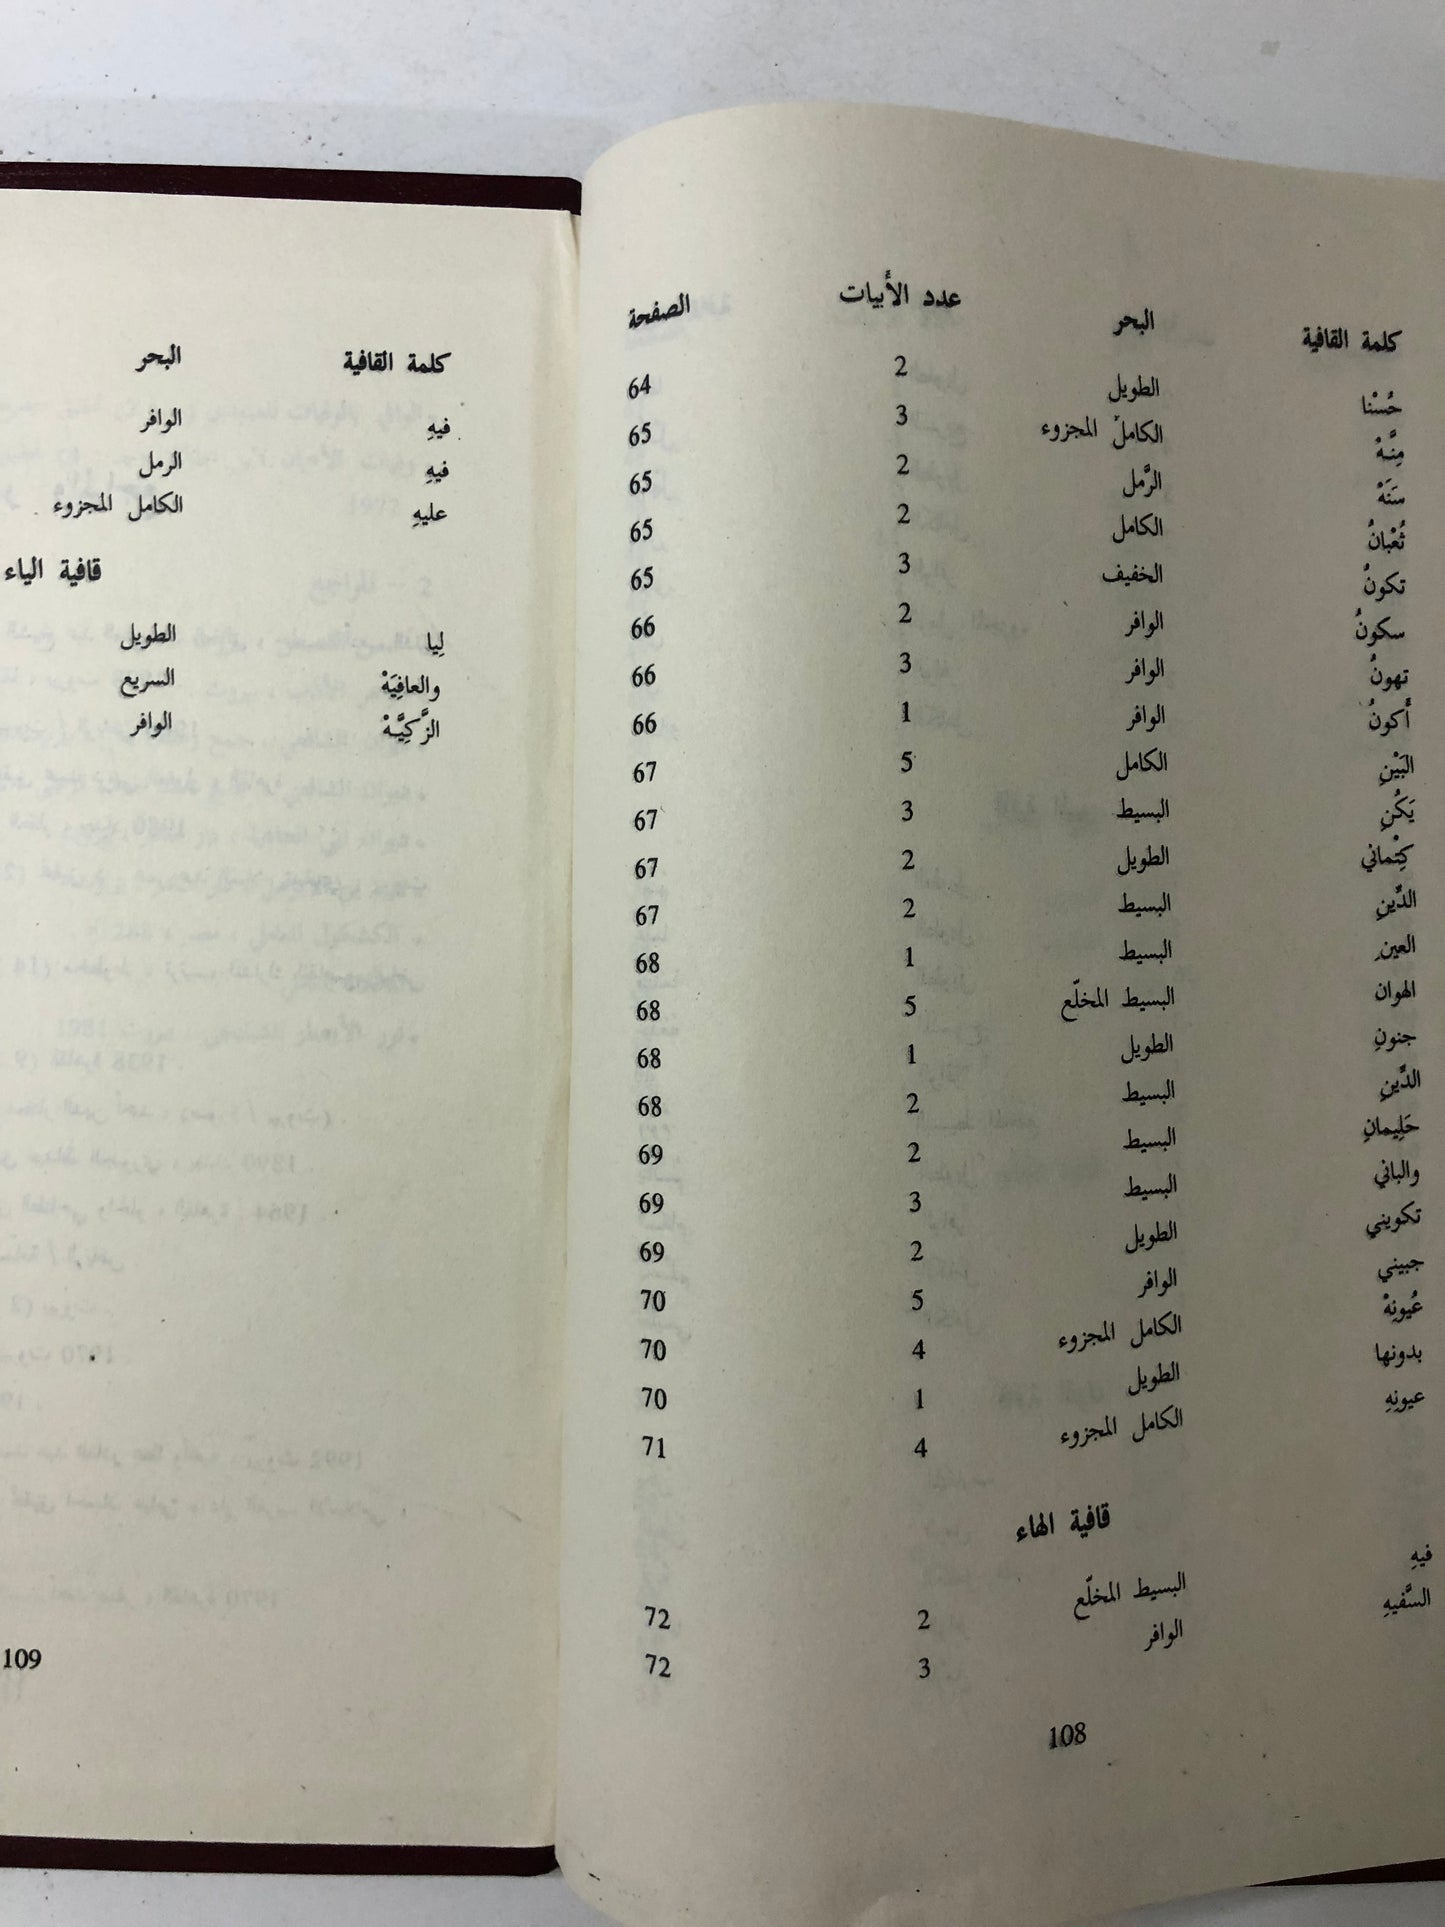 كلمة القافية البحر عدد الأبيات الصفحة
حُسْنا الطويل 2 64
مِنَّهْ الكامل المجزوء 3 65
سَنَهْ الرَّمل 2 65
ثُعْبانُ الكامل 2 65
تكونُ الخفيف 3 65
سكونُ الوافر 2 66
تهونُ الوافر 3 66
أكونُ الوافر 1 66
البَيْنِ الكامل 5 67
يَكُنِ البسيط 3 67
كِتْماني الطويل 2 67
الدِّينِ البسيط 2 67
العينِ البسيط 1 68
الهوان البسيط المخلّع 5 68
جنونِ الطويل 1 68
الدِّينِ البسيط 2 68
حَلِيمانِ البسيط 2 69
والباني البسيط 3 69
تكويني الطويل 2 69
جبيني الوافر 5 70
عُيونِهْ الكامل المجزوء 4 70
بدونها الطويل 1 70
عيونِهِ الكامل المجزوء 4 71
قافية الهاء
فيهِ البسيط المخلّع 2 72
السَّفيهِ الوافر 3 72
108
كلمة القافية البحر
فيهِ الوافر
فيهِ الرمل
عليهِ الكامل المجزوء
قافية الياء
لِيا الطويل
والعافِيَهْ السريع
الزَّكِيَّهْ الوافر
109